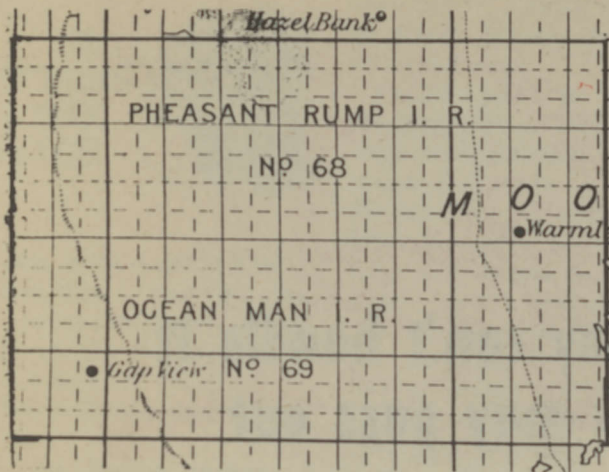 Hazel Bank
PHEASANT RUMP I. R.
No 68
M O O
Warml
OCEAN MAN I. R.
Gap View No 69